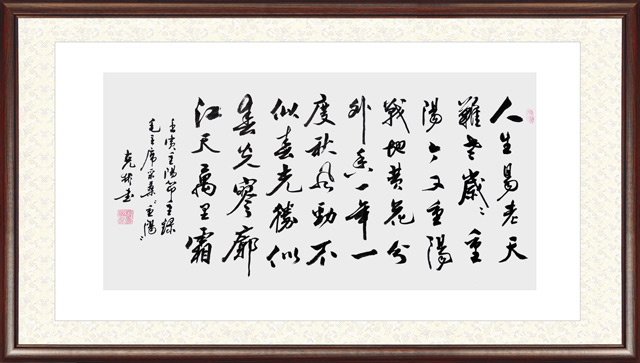 人生易老天
難老歲〻重
陽今又重陽
戰地黄花分
外香一年一
度秋風勁不
似春光勝似
春光寥廓
江天萬里霜
重陽節
毛主席采桑子重陽
克書